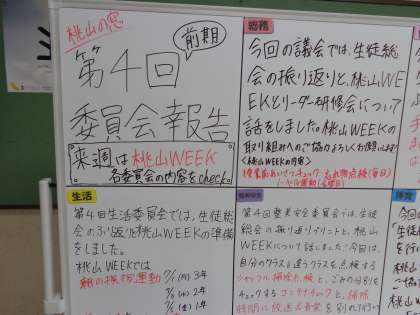 桃山の窓
前期
第4回
委員会報告
来週は桃山WEEK
各委員会の内容をcheck。
総務
今回の議会では、生徒総
会の振り返りと、桃山WE
EKとリーダー研修会について
話をしました。桃山WEEKの
取り組みへのご協力よろしくお願いします!
<桃山WEEKの内容>
生活
第4回生活委員会では、生徒総
会のふり返りと桃山WEEKの準備
をしました。
桃山WEEKでは
朝の挨拶運動
7/1(月)3年
7/3(水)2年
7/5(金)1年
第4回整美安全委員会では、生徒
総会の振り返りプリントと、桃山
WEEKについて話しました!今回は、
自分のクラスと違うクラスを点検する
シャッフル掃除点検と、ごみの分別を
チェックするコンテナチェックと、掃除
時間に放送する音楽を